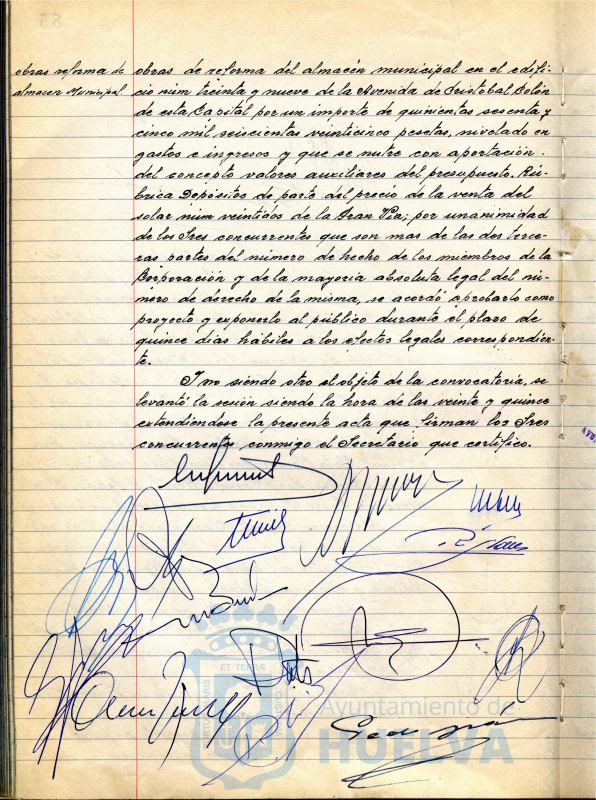 obras reforma de
almacén Municipal
obras de reforma del almacén municipal en el edifi-
cio núm treinta y nueve de la Avenida de Cristobal Colón
de esta Capital por un importe de quinientas sesenta y
cinco mil seiscientas veinticinco pesetas, nivelado en
gastos e ingresos y que se nutre con aportación
del concepto valores auxiliares del presupuesto. Rú-
brica Depósitos de parte del precio de la venta del
solar núm veintidos de la Gran Via; por unanimidad
de los Sres concurrentes que son mas de las dos terce-
ras partes del número de hecho de los miembros de la
Corporación y de la mayoria absoluta legal del nú-
mero de derecho de la misma, se acordó aprobarlo como
proyecto y exponerlo al público durante el plazo de
quince dias hábiles a los efectos legales correspondien-
te.
Y no siendo otro el objeto de la convocatoria, se
levantó la sesión siendo la hora de las veinte y quince
extendiéndose la presente acta que firman los Sres
concurrentes conmigo el Secretario que certifico.
ET TERRÆ
Ayuntamiento de
HUELVA